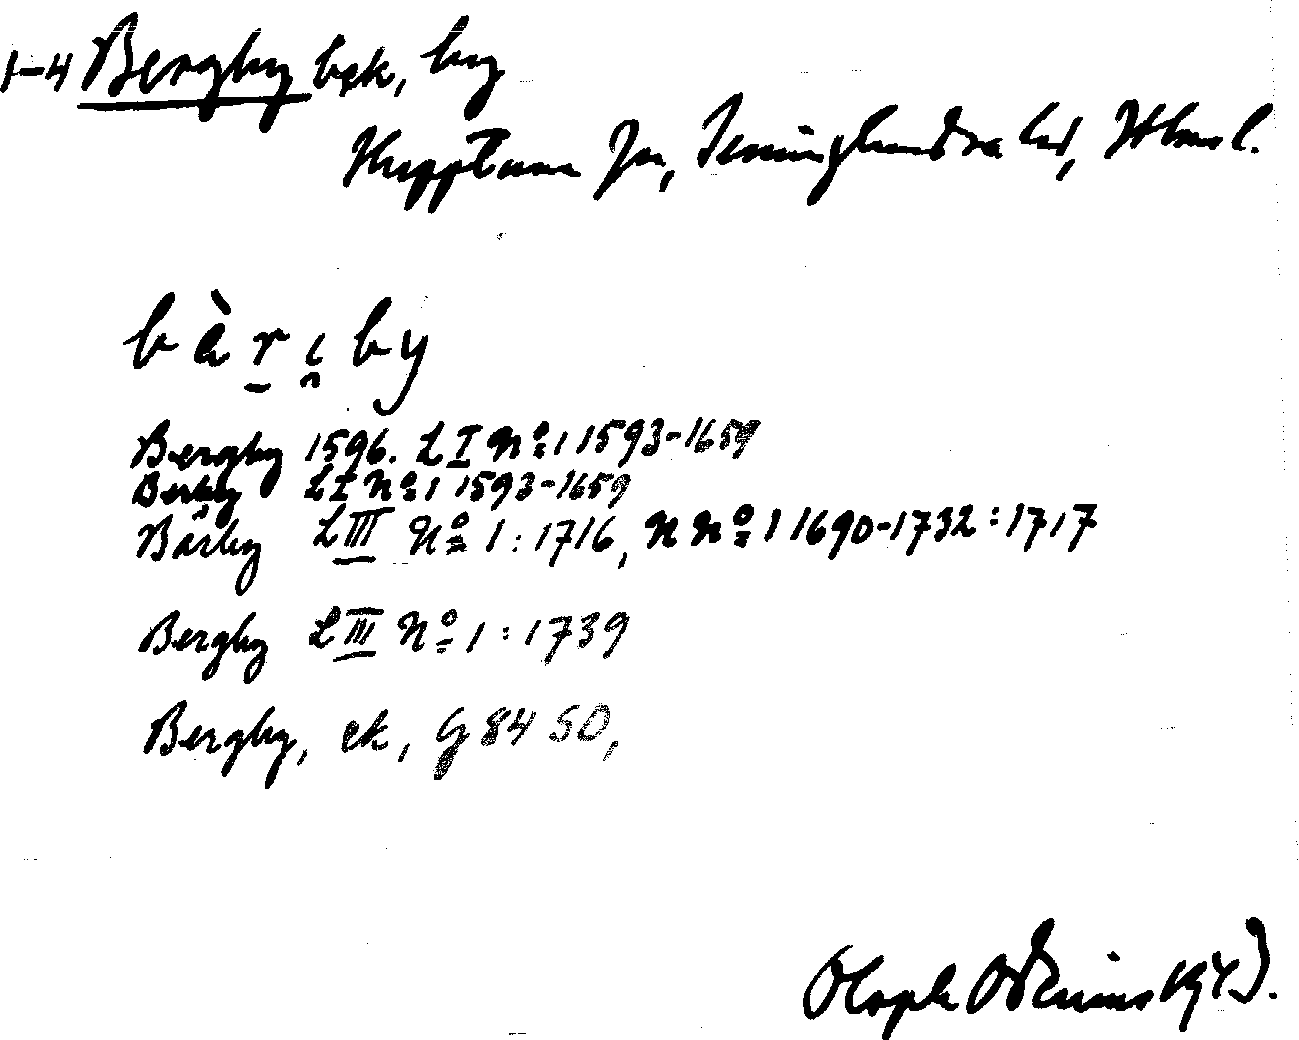 1-4 Bergby bek, by
Huggtuna sn, Seminghundra hd, Sthms l.
bàrs̯by
Bergby 1596. LI Nº 1 1593-1659
Berby LI Nº 1 1593-1659
Bärby LIII Nº 1: 1716, N Nº 1 1690-1732: 1717
Bergby LIII Nº 1: 1739
Bergby, ek, G 84 SO,
Oloph Odenius 1943.